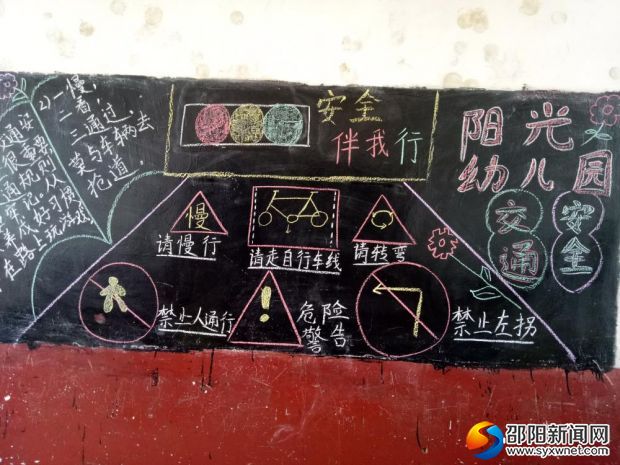 2)一慢,
二看,
三通过,
莫与车辆去
抢道.
通安
很重要
通规则
牢记人人
养成好习惯
在路上玩游戏
安全
伴我行
阳光
幼儿园
交通
安全
慢
请慢行
请走自行车线
请转弯
禁止人通行
!
危险
警告
禁止左拐
邵阳新闻网
www.syxwnet.com